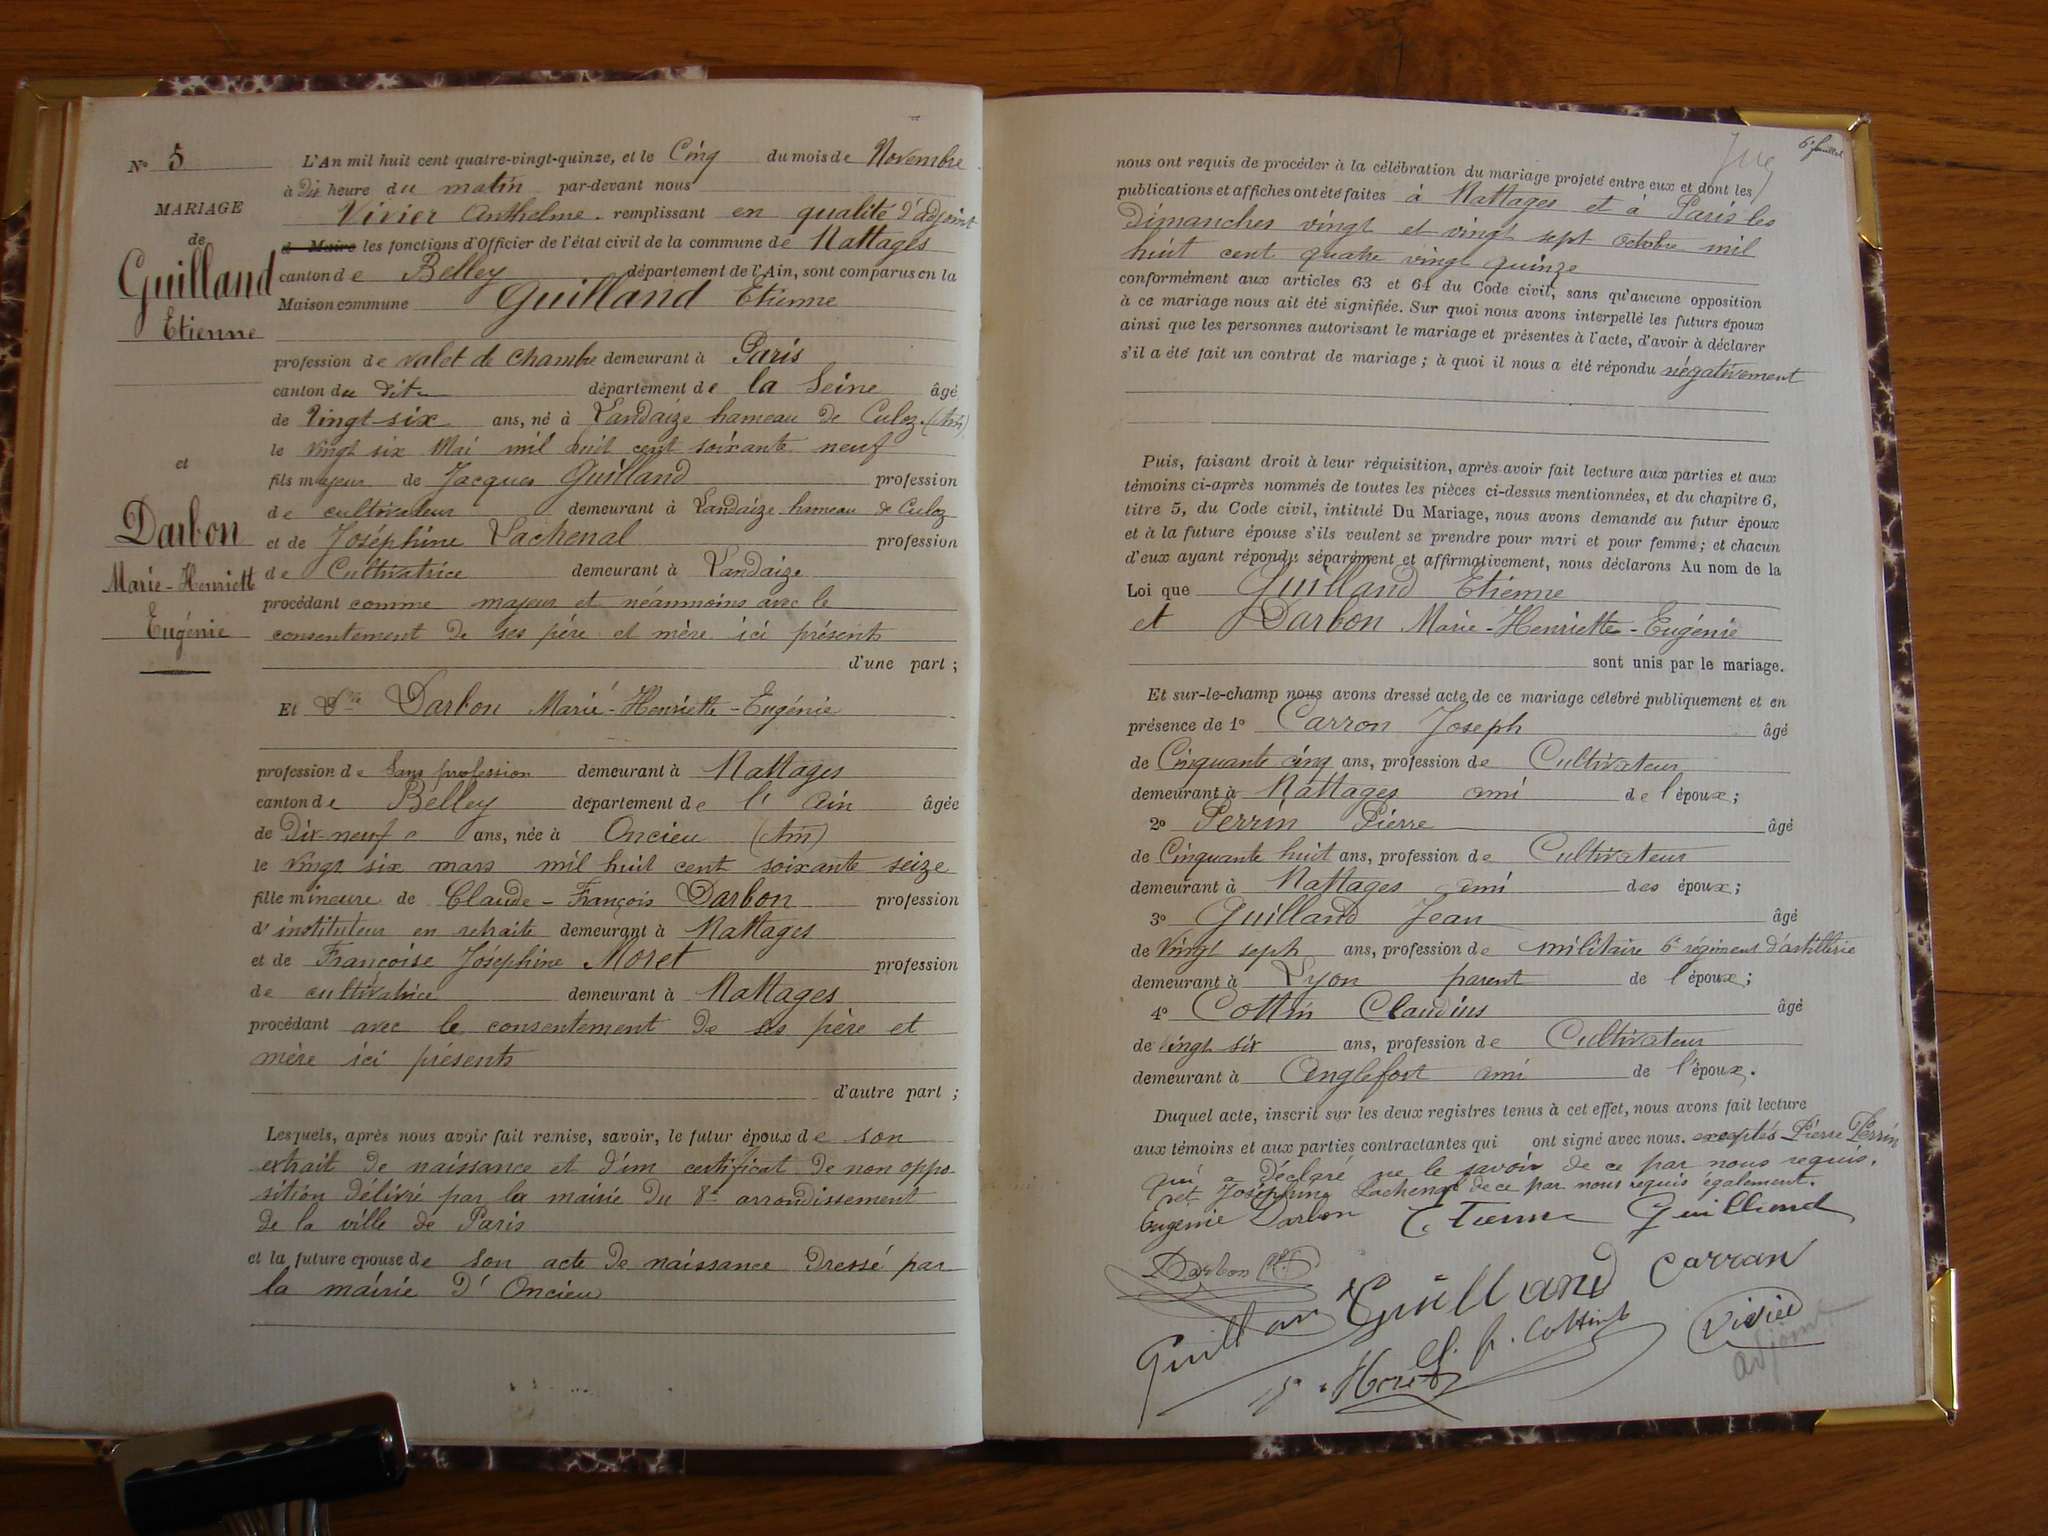 N° 5
MARIAGE
de
Guilland
Etienne
et
Darbon
Marie-Henriette
Eugénie
L'An mil huit cent quatre-vingt-quinze, et le Cinq du mois de Novembre
à Dix heure du matin par-devant nous
Vivier Anthelme remplissant en qualité d'adjoint
d Maire les fonctions d'Officier de l'état civil de la commune de Nattages
canton de Belley département de l'Ain, sont comparus en la
Maison commune Guilland Etienne
profession de valet de chambre demeurant à Paris
canton du dit département de la Seine âgé
de Vingt-six ans, né à Landaize hameau de Culoz (Ain)
le vingt six Mai mil huit cent soixante neuf
fils majeur de Jacques Guilland profession
de cultivateur demeurant à Landaize hameau de Culoz
et de Joséphine Lachenal profession
de Cultivatrice demeurant à Landaize
procédant comme majeur et néanmoins avec le
consentement de ses père et mère ici présents
d'une part ;
Et Dlle Darbon Marie-Henriette-Eugénie
profession de Sans profession demeurant à Nattages
canton de Belley département de l'Ain âgée
de Dix-neuf ans, née à Oncieu (Ain)
le vingt six mars mil huit cent soixante seize
fille mineure de Claude-François Darbon profession
d'instituteur en retraite demeurant à Nattages
et de Françoise Joséphine Moret profession
de cultivatrice demeurant à Nattages
procédant avec le consentement de ses père et
mère ici présents
d'autre part ;
Lesquels, après nous avoir fait remise, savoir, le futur époux de son
extrait de naissance et d'un certificat de non oppo-
sition délivré par la mairie du 8e arrondissement
de la ville de Paris
et la future épouse de son acte de naissance dressé par
la mairie d'Oncieu
6e feuillet
nous ont requis de procéder à la célébration du mariage projeté entre eux et dont les
publications et affiches ont été faites à Nattages et à Paris les
dimanches vingt et vingt sept octobre mil
huit cent quatre vingt quinze
conformément aux articles 63 et 64 du Code civil, sans qu'aucune opposition
à ce mariage nous ait été signifiée. Sur quoi nous avons interpellé les futurs époux
ainsi que les personnes autorisant le mariage et présentes à l'acte, d'avoir à déclarer
s'il a été fait un contrat de mariage ; à quoi il nous a été répondu négativement
Puis, faisant droit à leur réquisition, après avoir fait lecture aux parties et aux
témoins ci-après nommés de toutes les pièces ci-dessus mentionnées, et du chapitre 6,
titre 5, du Code civil, intitulé Du Mariage, nous avons demandé au futur époux
et à la future épouse s'ils veulent se prendre pour mari et pour femme ; et chacun
d'eux ayant répondu séparément et affirmativement, nous déclarons Au nom de la
Loi que Guilland Etienne
et Darbon Marie-Henriette-Eugénie
sont unis par le mariage.
Et sur-le-champ nous avons dressé acte de ce mariage célébré publiquement et en
présence de 1° Carron Joseph âgé
de Cinquante cinq ans, profession de Cultivateur
demeurant à Nattages ami de l'époux ;
2° Perrin Pierre âgé
de Cinquante huit ans, profession de Cultivateur
demeurant à Nattages ami des époux ;
3° Guilland Jean âgé
de vingt sept ans, profession de militaire 6e régiment d'artillerie
demeurant à Lyon parent de l'époux ;
4° Cottin Claudius âgé
de vingt six ans, profession de Cultivateur
demeurant à Anglefort ami de l'époux.
Duquel acte, inscrit sur les deux registres tenus à cet effet, nous avons fait lecture
aux témoins et aux parties contractantes qui ont signé avec nous. exceptés Pierre Perrin
qui a déclaré ne le savoir de ce par nous requis.
et Joséphine Lachenal de ce par nous requis également.
Eugénie Darbon Etienne Guilland
Darbon
Guilland Carran
Guilland Cottin Vivier
Moret adjoint